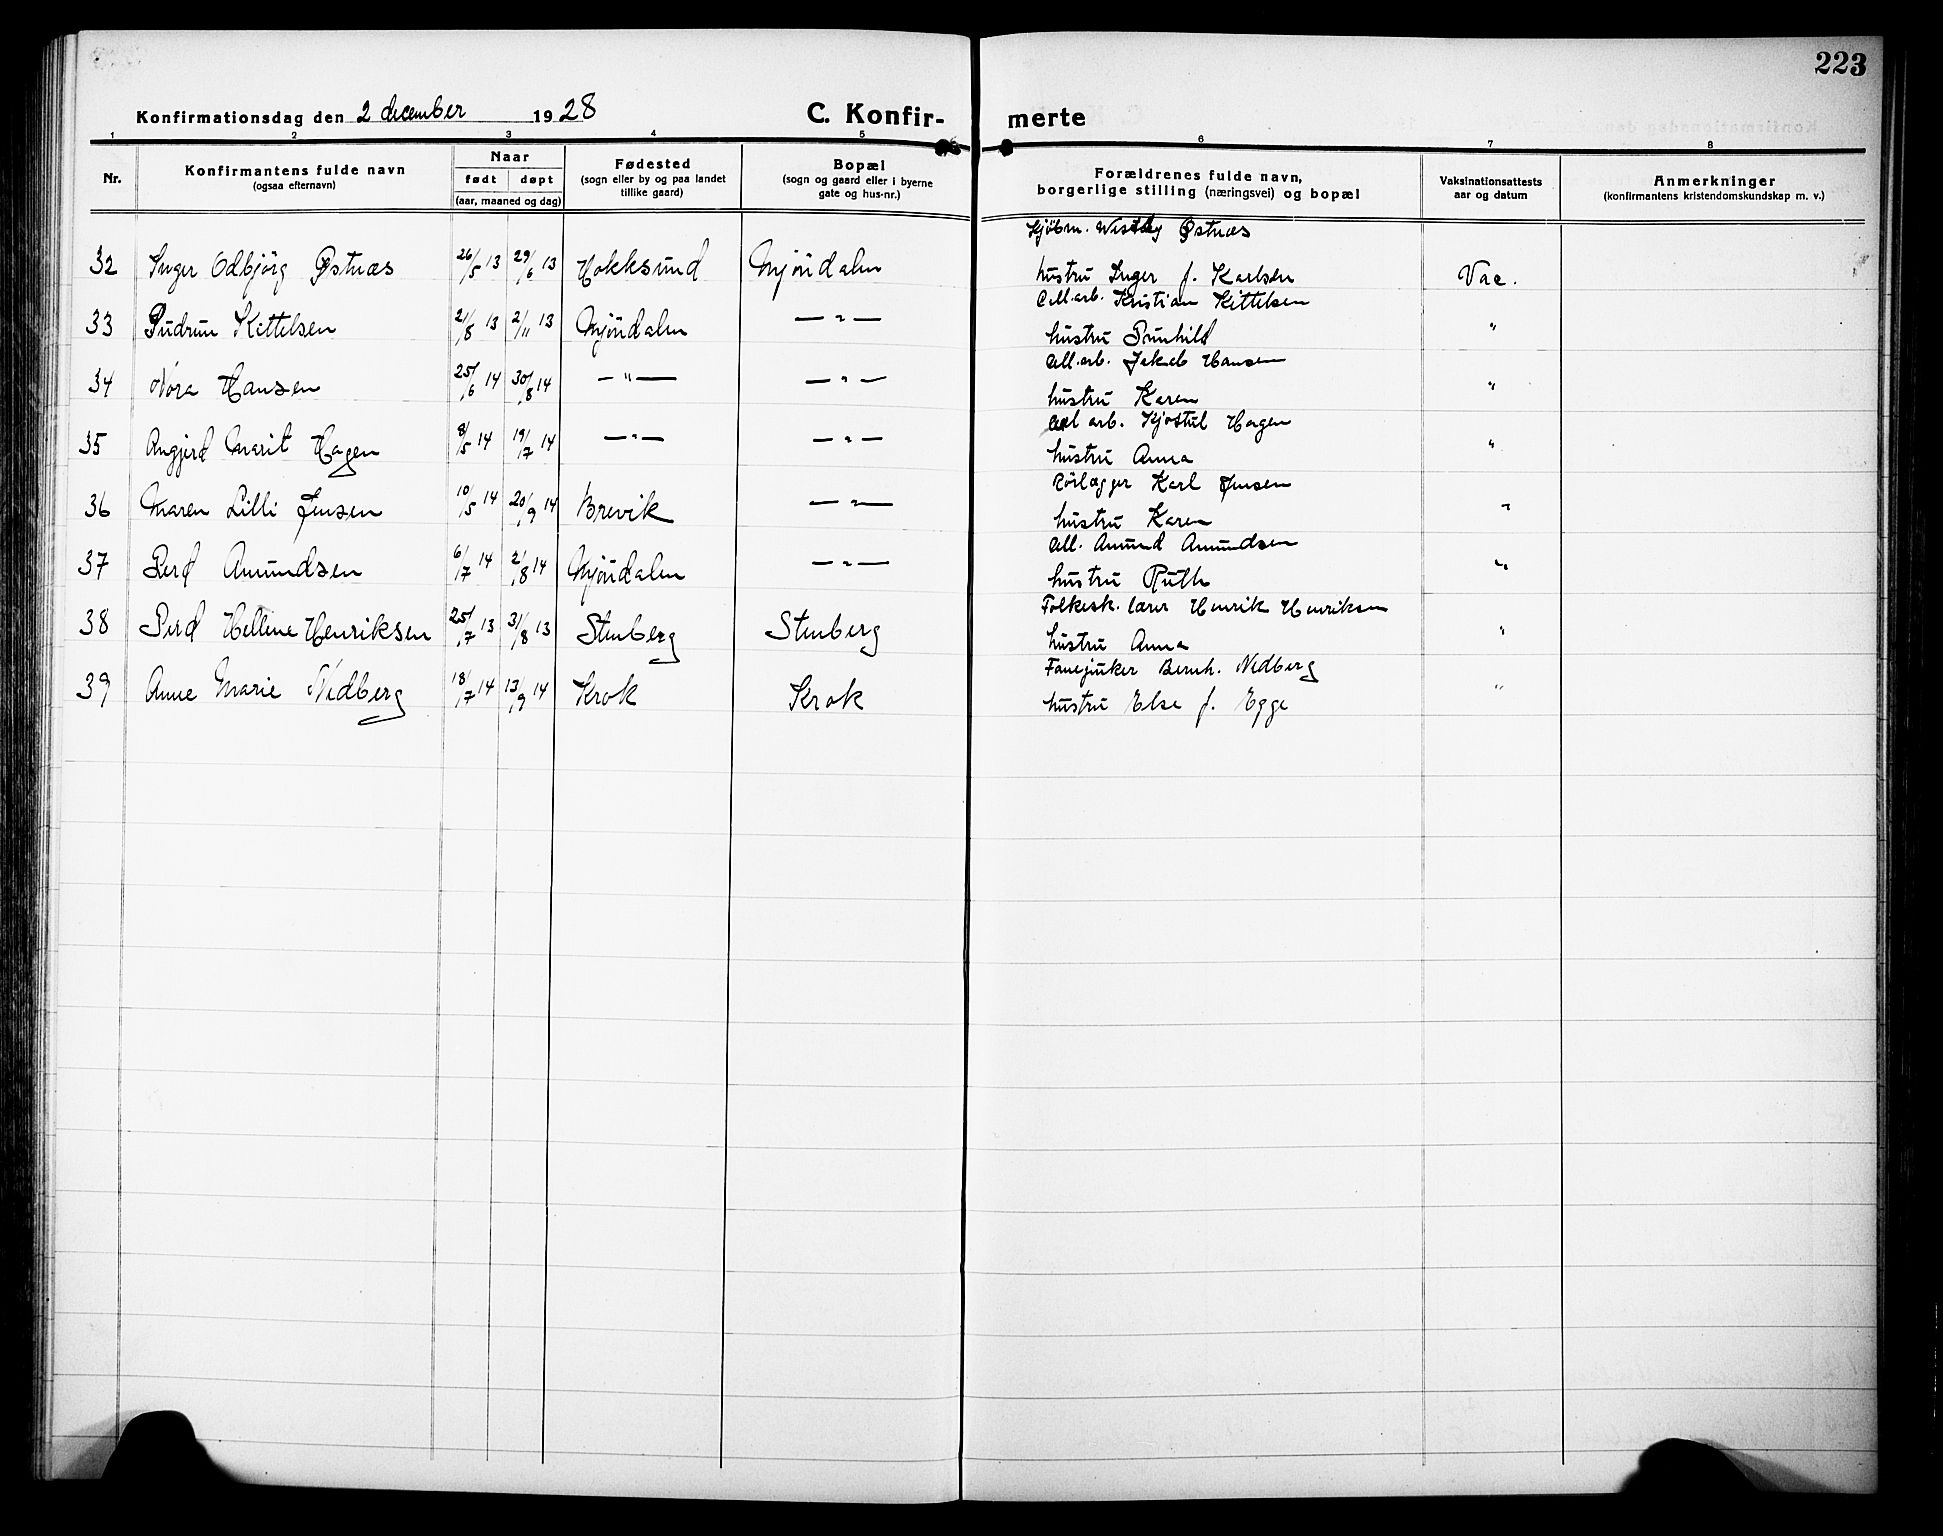 223
Konfirmationsdag den 2 december 1928 C. Konfir- merte
1 2 3 4 5 6 7 8
Nr. Konfirmantens fulde navn (ogsaa efternavn) Naar født døpt (aar, maaned og dag) Fødested (sogn eller by og paa landet tillike gaard) Bopæl (sogn og gaard eller i byerne gate og hus-nr.) Forældrenes fulde navn, borgerlige stilling (næringsvei) og bopæl Vaksinationsattests aar og datum Anmerkninger (konfirmantens kristendomskundskap m. v.)
Kjøbm. Westby Østnæs
32 Inger Odbjörg Østnæs 26/5 13 29/6 13 Hokksund Mjöndalen hustru Inger f. Karlsen Vac.
Cell.arb. Kristian Kittelsen
33 Gudrun Kittelsen 21/8 13 2/11 13 Mjöndalen — " — hustru Gunhild "
Cell.arb. Jakob Hansen
34 Nora Hansen 25/6 14 30/8 14 — " — — " — hustru Karen "
Cel arb. Kjostul Hagen
35 Angjerd Marit Hagen 8/5 14 19/7 14 — " — — " — hustru Anna "
Rörlægger Karl Jensen
36 Maren Lilli Jensen 10/5 14 20/9 14 Brevik — " — hustru Karen "
Cell. Amund Amundsen
37 Gerd Amundsen 6/7 14 2/8 14 Mjöndalen — " — hustru Ruth "
Folkesk. lærer Henrik Henriksen
38 Gerd Hellene Henriksen 25/7 13 31/8 13 Stenberg Stenberg hustru Anna "
Fanejunker Bernh. Nedberg
39 Anne Marie Nedberg 18/7 14 13/9 14 Krok Krok hustru Else f. Egge "